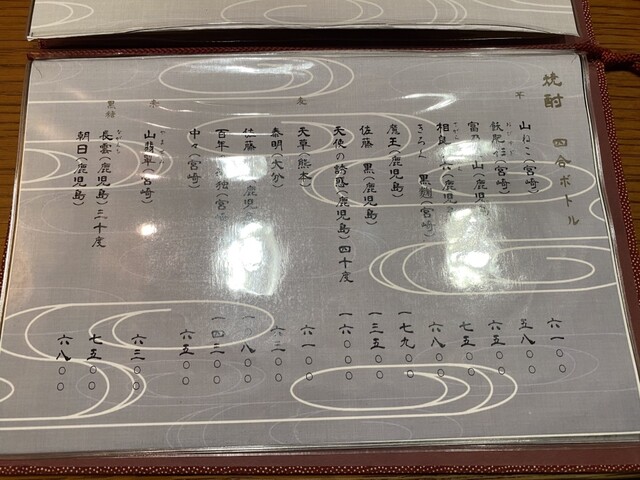 焼酎 四合ボトル
芋
山ねこ(宮崎) 六一〇〇
飫肥杉(宮崎) 五八〇〇
富乃 山(鹿児島) 六五〇〇
相良 (鹿児 七五〇〇
黒麹(宮崎) 六八〇〇
魔王(鹿児島) 一七九〇〇
佐藤 黒(鹿児島) 一三五〇〇
天使の誘惑(鹿児島)四十度 一六〇〇〇
麦
天草(熊本) 六一〇〇
泰明(大分) 六三〇〇
佐藤 鹿児島) 一〇八〇〇
百年 独(宮崎 一四三〇〇
中々(宮崎) 六五〇〇
山翡翠(宮崎) 六三〇〇
黒糖
長雲(鹿児島)三十度 七五〇〇
朝日(鹿児島) 六八〇〇